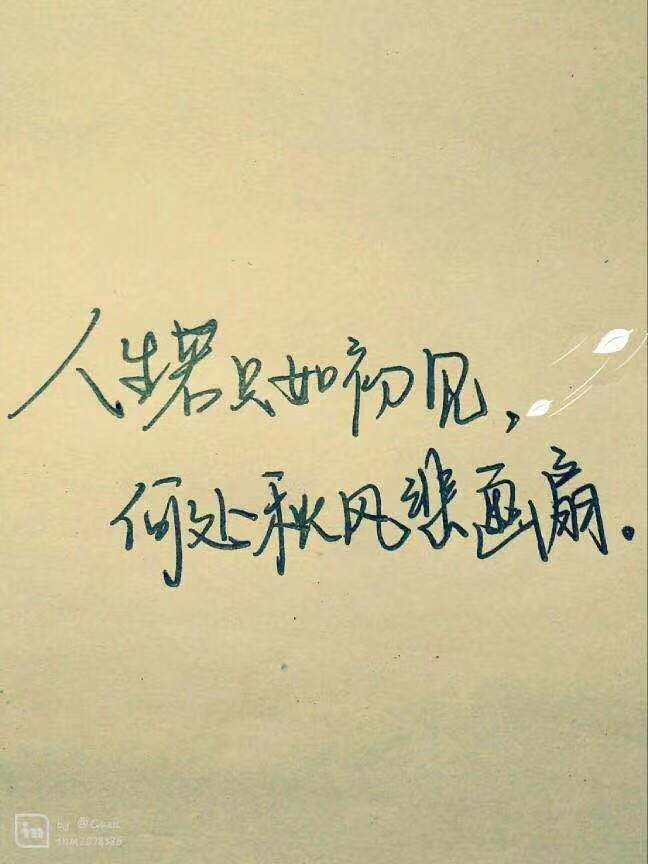 人生若只如初见，
何处秋风悲画扇.
in by @Gaai